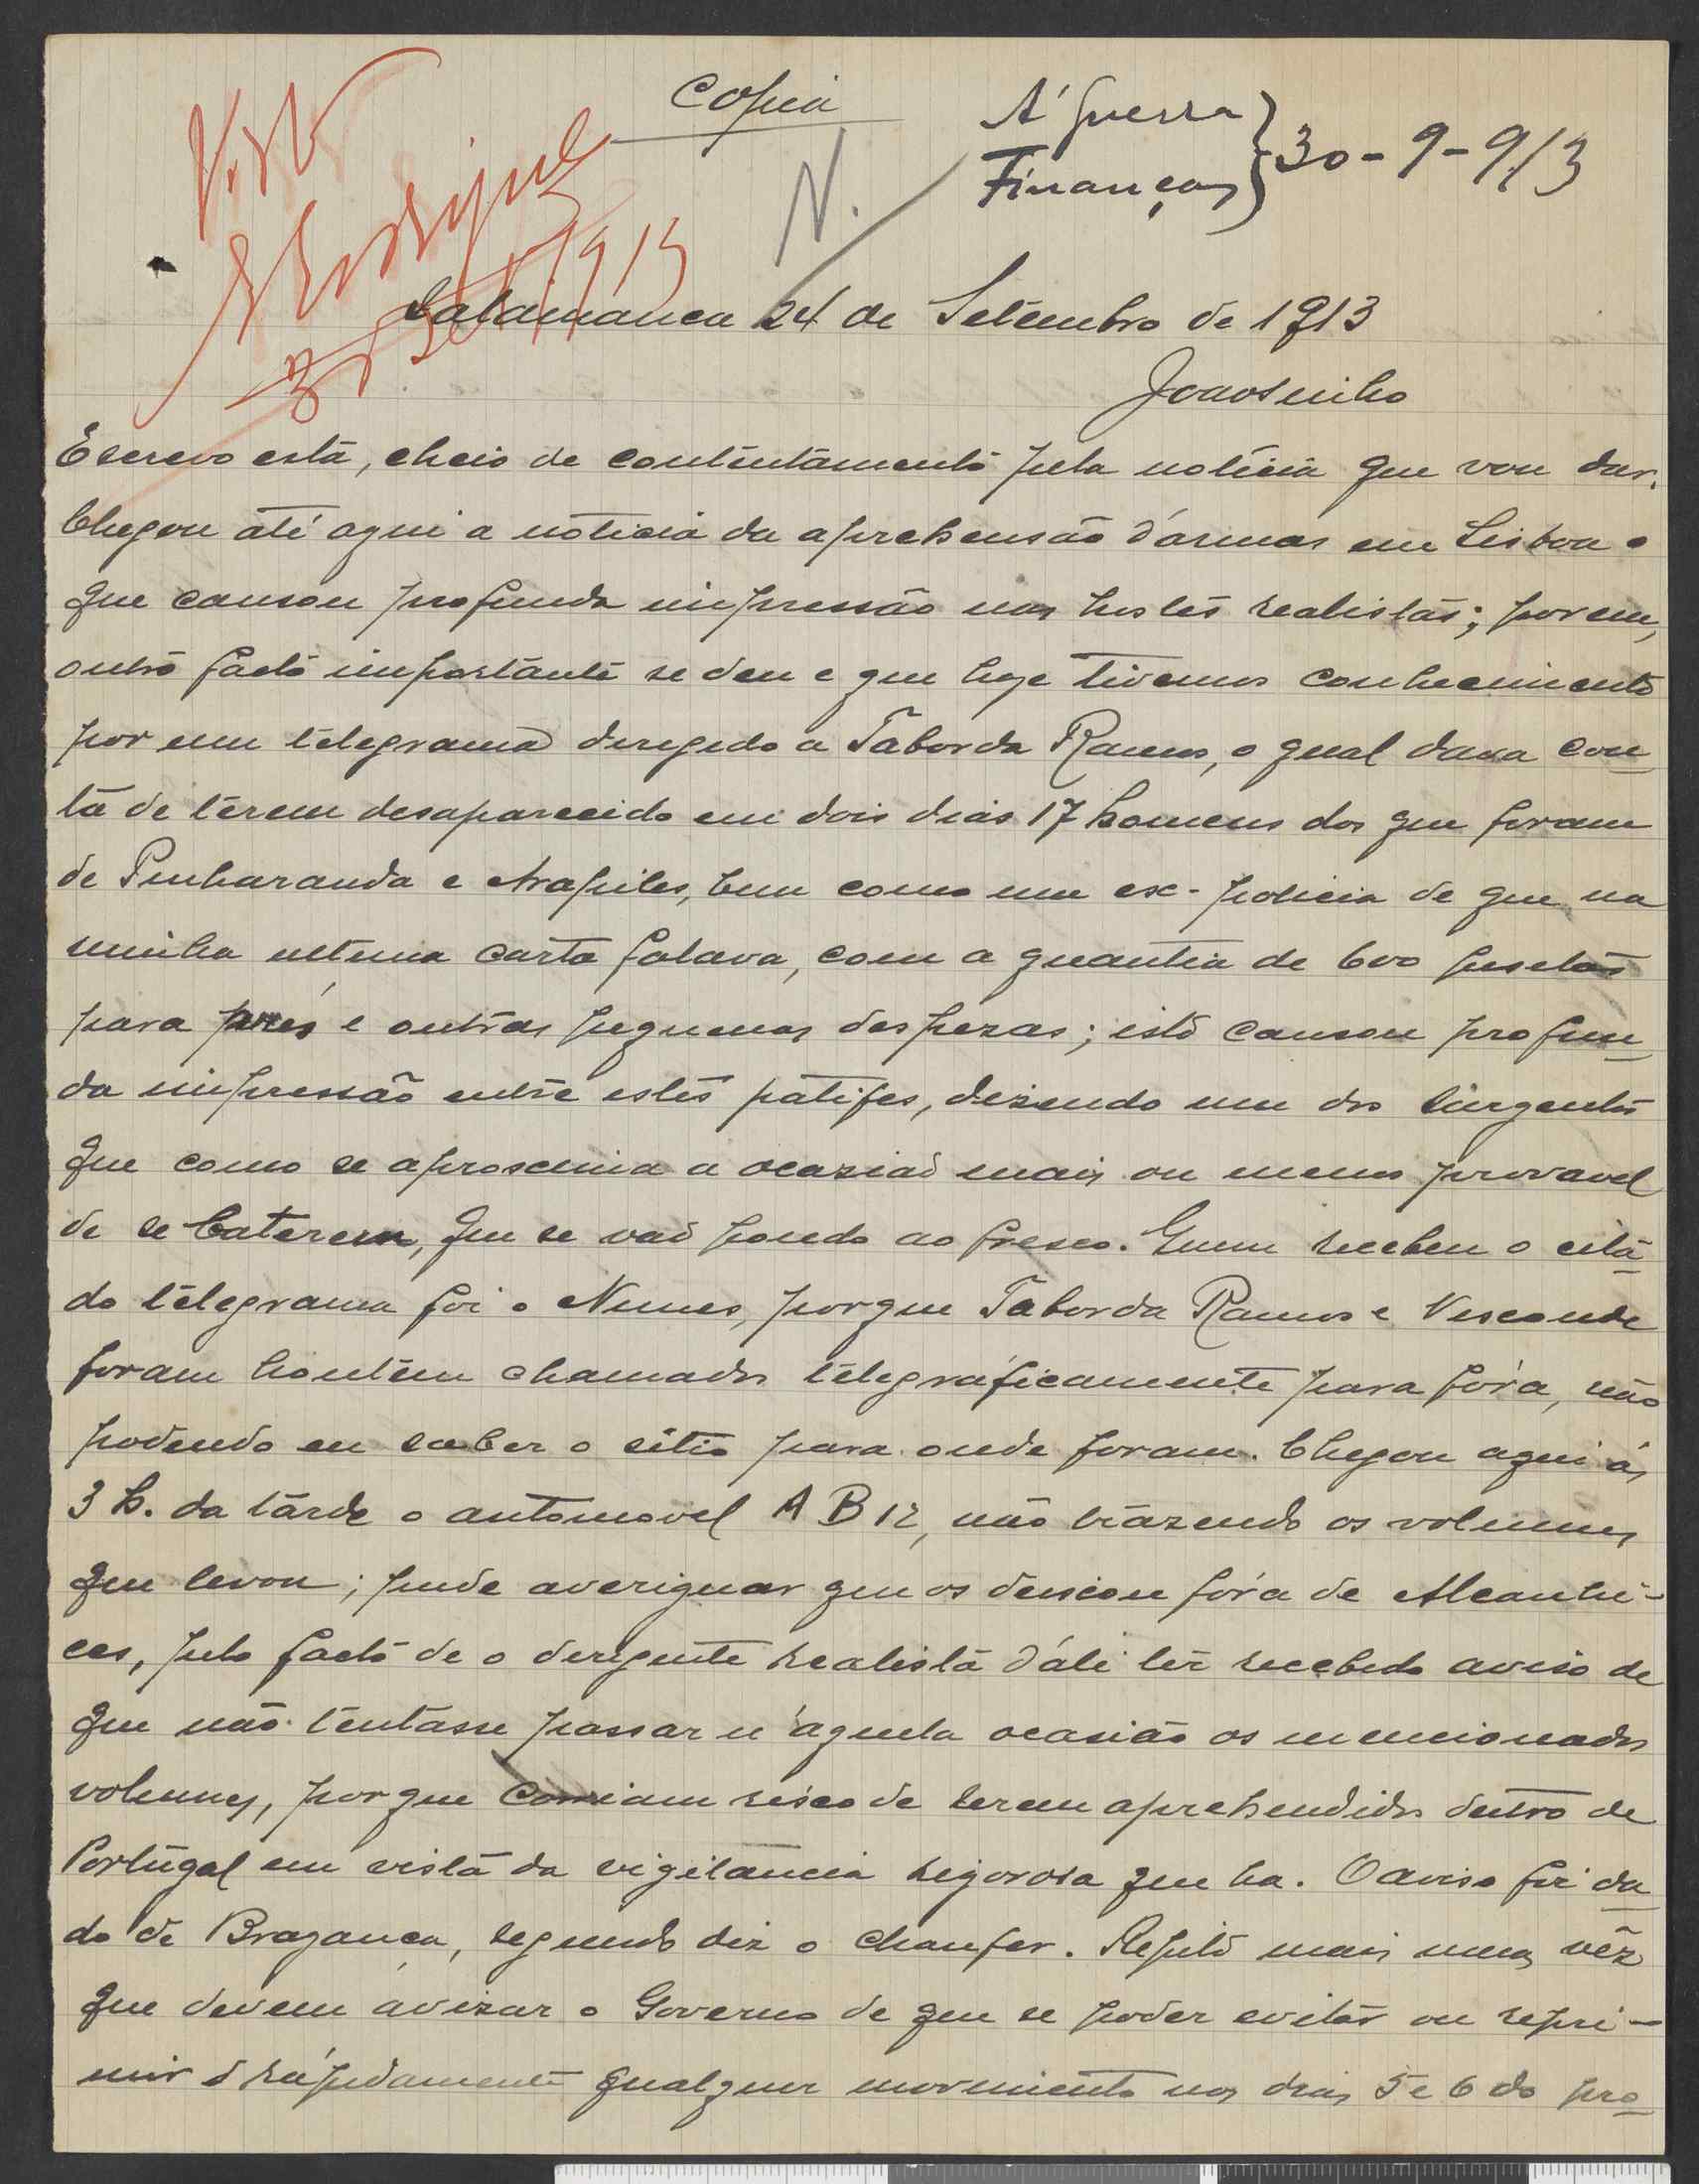 Copia
Visto
Á Guerra
Finanças } 30-9-913
N.
Salamanca 24 de Setembro de 1913
Joaosinho
Escrevo esta, cheio de contentamento pela noticia que vou dar.
Chegou até aqui a noticia da aprehensão d'armas em Lisboa o
que causou profunda impressão nas hostes realistas; porem,
outro facto importante se deu e que hoje tivemos conhecimento
por um telegrama deregido a Taborda Ramos, o qual dava con-
ta de terem desaparecido em dois dias 17 homens dos que foram
de Penharanda e Arapiles, bem como um ex-policia de que na
minha ultima carta falava, com a quantia de 600 pesetas
para prés e outras pequenas despezas; isto causou profun-
da impressão entre estes patifes, dezendo um dos sargentos
que como se aproscimia a ocazião mais ou menos provavel
de se baterem, que se vão pondo ao fresco. Quem recebeu o cita-
do telegrama foi o Nunes, porque Taborda Ramos e Visconde
foram hontem chamados telegráficamente para fóra, não
podendo eu saber o sitio para onde foram. Chegou aqui ás
3 h. da tarde o automovel A B 12, não trazendo os volumes
que levou; pude averiguar que os deixou fóra de Alcanhi-
ces, pelo facto de o derigente realista d'ali ter recebido aviso de
que não tentasse passar n'aquela ocasião os mencionados
volumes, porque corriam risco de serem aprehendidos dentro de
Portugal em vista da vigilancia rigorosa que ha. O aviso foi da-
do de Bragança, segundo diz o chaufer. Repito mais uma vêz
que devem avizar o Governo de que se poder evitar ou repri-
mir rápidamente qualquer movimento nos dias 5 e 6 do pro-